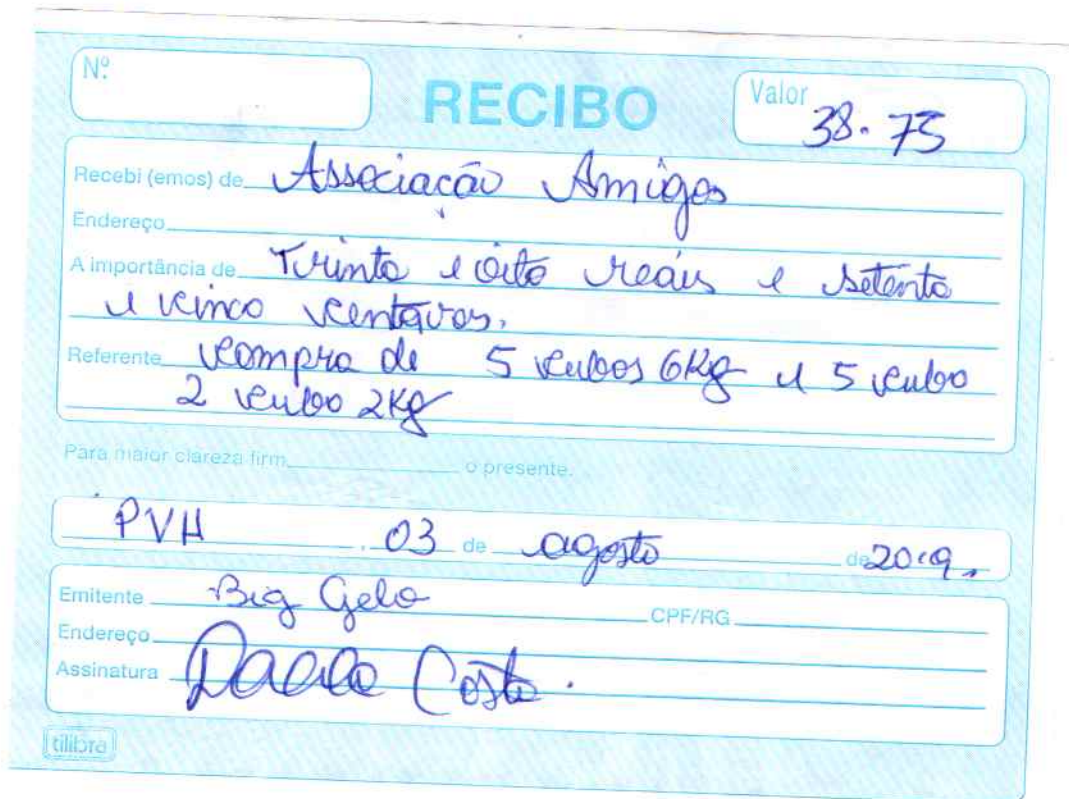 Nº
RECIBO
Valor 38.75
Recebi (emos) de Associação Amigos
Endereço
A importância de Trinta e oito reais e setenta
e cinco centavos.
Referente compra de 5 cubos 6Kg e 5 cubo
2 cubo 2Kg
Para maior clareza firm o presente.
PVH, 03 de agosto de 2019.
Emitente Big Gelo CPF/RG
Endereço
Assinatura Costa.
tilibra